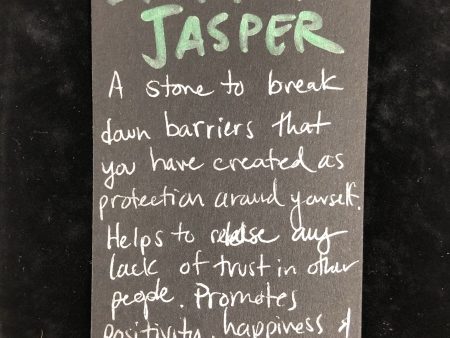 JASPER
A stone to break
down barriers that
you have created as
protection around yourself.
Helps to release any
lack of trust in other
people. Promotes
positivity, happiness &